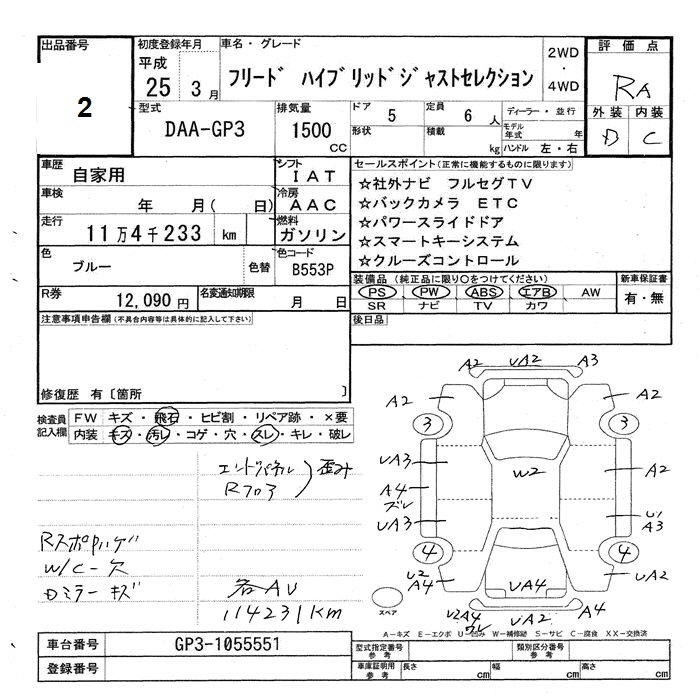 出品番号
2
初度登録年月
平成
25 3 月
車名・グレード
フリード ハイブリッドジャストセレクション
2WD
・
4WD
評価点
RA
外装 内装
D C
型式
DAA-GP3
排気量
1500
CC
ドア 5
形状
定員 6 人
積載 kg
ディーラー・並行
モデル年式 年
ハンドル 左・右
車歴
自家用
シフト
IAT
車検
年 月( 日)
冷房
AAC
走行
11万4千233 km
燃料
ガソリン
色
ブルー
色替
色コード
B553P
R券
12,090円
名変通知期限
月 日
セールスポイント(正常に機能するものに限ります)
☆社外ナビ フルセグTV
☆バックカメラ ETC
☆パワースライドドア
☆スマートキーシステム
☆クルーズコントロール
装備品(純正品に限り○をつけてください)
PS PW ABS エアB AW
SR ナビ TV カワ
新車保証書
有・無
後日品
注意事項申告欄(不具合内容等は具体的に記入して下さい)
修復歴 有〔箇所 〕
検査員
記入欄
FW キズ・飛石・ヒビ割・リペア跡・×要
内装 キズ・汚レ・コゲ・穴・スレ・キレ・破レ
エンドパネル
Rフロア
歪み
Rスポ
W/C-欠
Dミラーキズ
各AU
114231KM
A2 UA2 A3
A2 A2
3 3
UA3 W2 A2
A4
ズレ
UA3 U1
A3
4 4
U2
A4 UA4 UA2
スペア
U2A4
ワレ
UA2 A4
A-キズ E-エクボ U-凹み W-補修跡 S-サビ C-腐食 XX-交換済
車台番号
GP3-1055551
登録番号
型式指定番号
参考
類別区分番号
参考
車庫証明用
参考
長さ cm
幅 cm
高さ cm